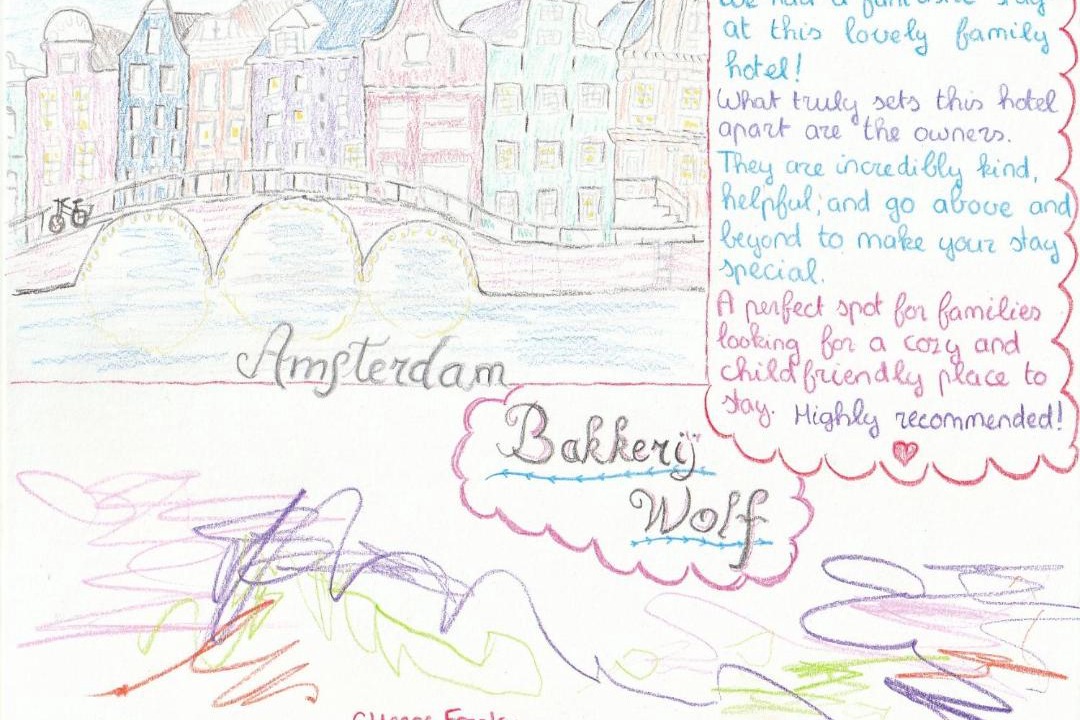 We had a fantastic stay
at this lovely family
hotel!
What truly sets this hotel
apart are the owners.
They are incredibly kind,
helpful, and go above and
beyond to make your stay
special.
A perfect spot for families
looking for a cozy and
childfriendly place to
stay. Highly recommended!
Amsterdam
Bakkerij
Wolf